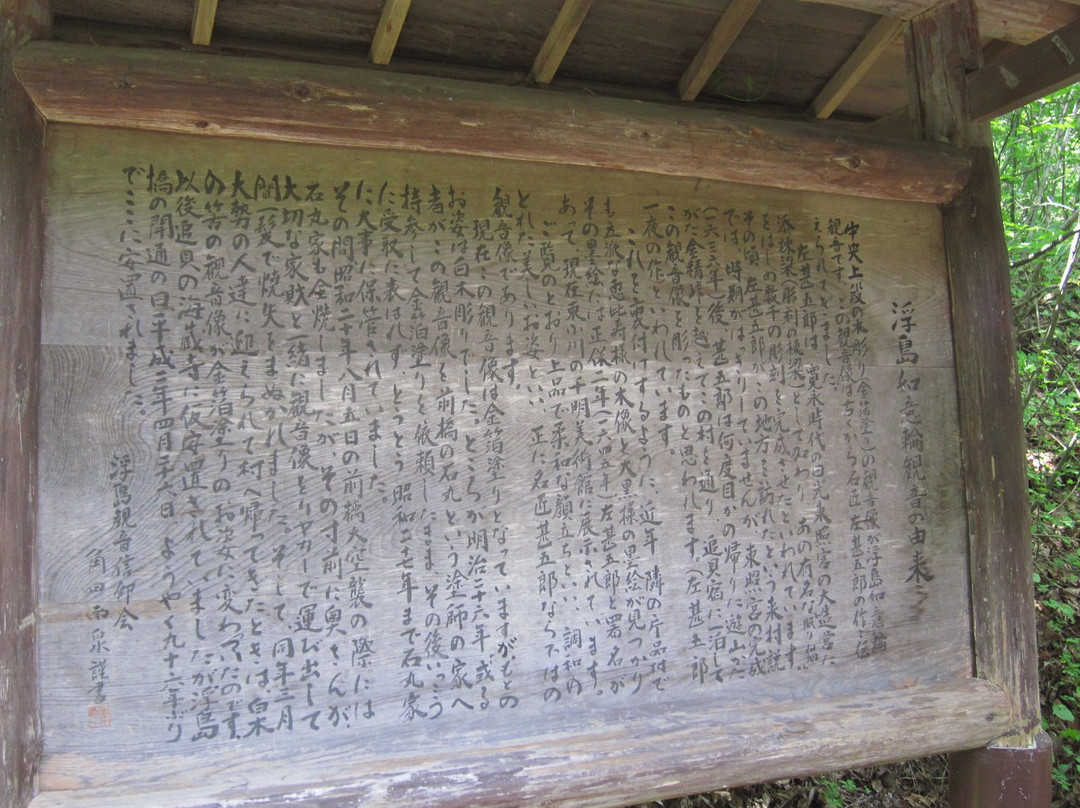 浮島如意輪観音の由来
中央上段の木彫り(金箔塗り)の観音像が浮島如意輪
観音です。この観音像は古くから名匠左甚五郎の作と伝
えられてきました。
左甚五郎は、寛永時代の日光東照宮の大造営に
添棟梁(彫刻の棟梁)として加わり、あの有名な眠り猫
をはじめ数千の彫刻を完成させたといわれています。
その頃、左甚五郎がこの地方を訪れたという来村説
では、時期がはっきりしていませんが、東照宮の完成
(一六三六年)後、甚五郎は何度目かの帰りに遊山か
がた金精峠を越えてこの村を通り、追貝宿に一泊して
この観音像を彫ったものと思われます(左甚五郎
一夜の作)といわれています。
これを裏付けするように、近年、隣の片品村で
も立派な恵比寿様の木像と大黒様の墨絵が見つかり
その墨絵には正保二年(一六四五年)左甚五郎と署名が
あって、現在東小川の千明美術館に展示されています。
ご覧のとおり、上品で柔和な顔立ちといい、調和の
とれた美しいお姿といい、正に名匠甚五郎ならではの
観音像であります。
現在この観音像は金箔塗りとなっていますがもとの
お姿は白木彫りでした。ところが明治二十六年、或る
者がこの観音像を前橋の石丸という塗師の家へ
持参して金箔塗りを依頼したまま、その後いっこう
に受取に表はれず、とうとう昭和二十七年まで石丸家
に大事に保管されていました。
その間昭和二十年八月五日の前橋大空襲の際には
石丸家も全焼しましたが、その寸前に奥さんが
大切な家財と一緒に観音像をリヤカーで運び出して
間一髪で焼失をまぬかれました。そして、同年三月
大勢の人達に迎えられて村へ帰ってきたときは、白木
の筈の観音像が金箔塗りのお姿に変わっていたのです。
以後追貝の海蔵寺に仮安置されていましたが浮島
橋の開通の日平成二年四月二十六日、ようやく九十七年ぶり
でここに安置されました。
浮島観音信仰会
角田南泉謹書